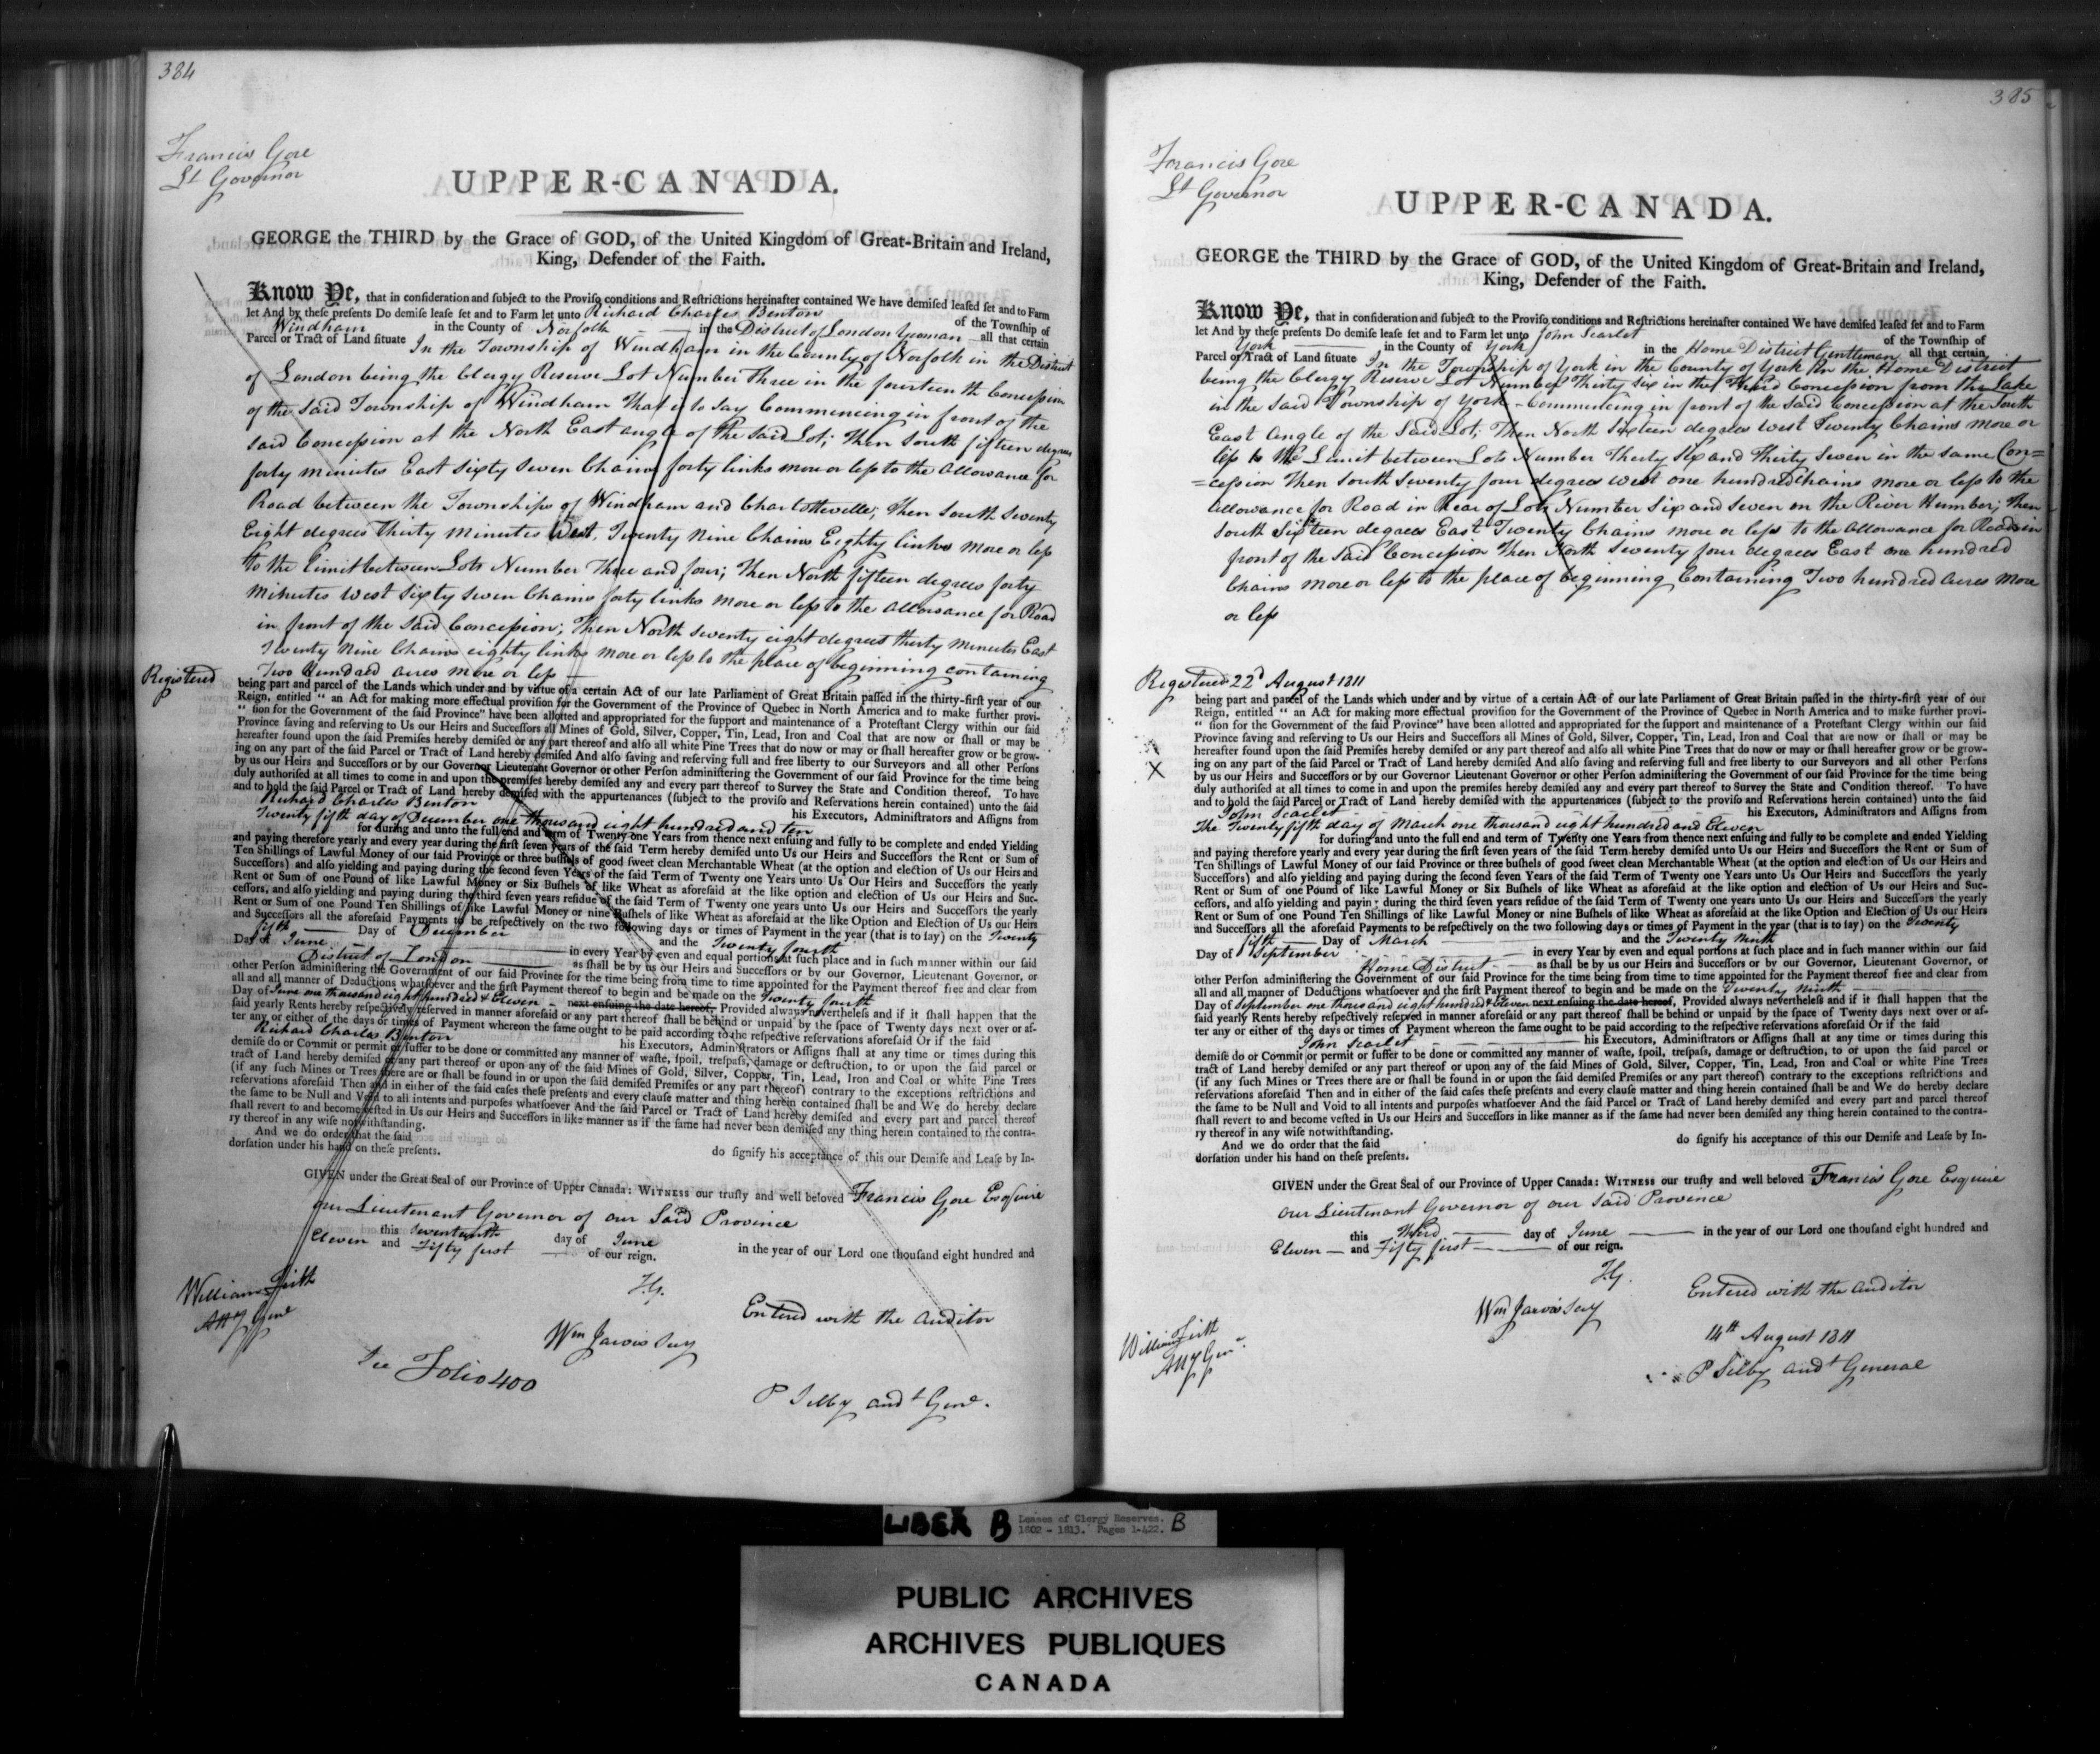 384
Francis Gore
Lt Governor
UPPER-CANADA.
GEORGE the THIRD by the Grace of GOD, of the United Kingdom of Great-Britain and Ireland,
King, Defender of the Faith.
Know Ye, that in consideration and subject to the Proviso conditions and Restrictions hereinafter contained We have demised leased set and to Farm
let And by these presents Do demise lease set and to Farm let unto Richard Charles Benton of the Township of
Windham in the County of Norfolk in the District of London Yeoman all that certain
Parcel or Tract of Land situate In the Township of Windham in the County of Norfolk in the District
of London being the Clergy Reserve Lot Number Three in the fourteenth Concession
of the said Township of Windham That is to say Commencing in front of the
said Concession at the North East angle of the said Lot; Then South fifteen degrees
forty minutes East sixty seven Chains forty links more or less to the allowance for
Road between the Townships of Windham and Charlotteville; Then South seventy
Eight degrees Thirty minutes West, Twenty Nine Chains Eighty links more or less
to the limit between Lots Number Three and four; Then North fifteen degrees forty
minutes West sixty seven Chains forty links more or less to the allowance for Road
in front of the said Concession; Then North seventy eight degrees thirty minutes East
Twenty Nine Chains eighty links more or less to the place of beginning containing
Two Hundred acres more or less
Registered
being part and parcel of the Lands which under and by virtue of a certain Act of our late Parliament of Great Britain passed in the thirty-first year of our
Reign, entitled " an Act for making more effectual provision for the Government of the Province of Quebec in North America and to make further provi-
" sion for the Government of the said Province" have been allotted and appropriated for the support and maintenance of a Protestant Clergy within our said
Province saving and reserving to Us our Heirs and Successors all Mines of Gold, Silver, Copper, Tin, Lead, Iron and Coal that are now or shall or may be
hereafter found upon the said Premises hereby demised or any part thereof and also all white Pine Trees that do now or may or shall hereafter grow or be grow-
ing on any part of the said Parcel or Tract of Land hereby demised And also saving and reserving full and free liberty to our Surveyors and all other Persons
by us our Heirs and Successors or by our Governor Lieutenant Governor or other Person administering the Government of our said Province for the time being
duly authorised at all times to come in and upon the premises hereby demised any and every part thereof to Survey the State and Condition thereof. To have
and to hold the said Parcel or Tract of Land hereby demised with the appurtenances (subject to the proviso and Reservations herein contained) unto the said
Richard Charles Benton his Executors, Administrators and Assigns from
Twenty fifth day of December one thousand eight hundred and ten
for during and unto the full end and term of Twenty one Years from thence next ensuing and fully to be complete and ended Yielding
and paying therefore yearly and every year during the first seven years of the said Term hereby demised unto Us our Heirs and Successors the Rent or Sum of
Ten Shillings of Lawful Money of our said Province or three bushels of good sweet clean Merchantable Wheat (at the option and election of Us our Heirs and
Successors) and also yielding and paying during the second seven Years of the said Term of Twenty one Years unto Us Our Heirs and Successors the yearly
Rent or Sum of one Pound of like Lawful Money or Six Bushels of like Wheat as aforesaid at the like option and election of Us our Heirs and Suc-
cessors, and also yielding and paying during the third seven years residue of the said Term of Twenty one years unto Us our Heirs and Successors the yearly
Rent or Sum of one Pound Ten Shillings of like Lawful Money or nine Bushels of like Wheat as aforesaid at the like Option and Election of Us our Heirs
and Successors all the aforesaid Payments to be respectively on the two following days or times of Payment in the year (that is to say) on the Twenty
fifth Day of December and the Twenty fourth
Day of June in every Year by even and equal portions at such place and in such manner within our said
District of London as shall be by us our Heirs and Successors or by our Governor, Lieutenant Governor, or
other Person administering the Government of our said Province for the time being from time to time appointed for the Payment thereof free and clear from
all and all manner of Deductions whatsoever and the first Payment thereof to begin and be made on the Twenty fourth
Day of June one thousand eight hundred & Eleven - next ensuing the date hereof, Provided always nevertheless and if it shall happen that the
said yearly Rents hereby respectively reserved in manner aforesaid or any part thereof shall be behind or unpaid by the space of Twenty days next over or af-
ter any or either of the days or times of Payment whereon the same ought to be paid according to the respective reservations aforesaid Or if the said
Richard Charles Benton his Executors, Administrators or Assigns shall at any time or times during this
demise do or Commit or permit or suffer to be done or committed any manner of waste, spoil, trespass, damage or destruction, to or upon the said parcel or
tract of Land hereby demised or any part thereof or upon any of the said Mines of Gold, Silver, Copper, Tin, Lead, Iron and Coal or white Pine Trees
(if any such Mines or Trees there are or shall be found in or upon the said demised Premises or any part thereof) contrary to the exceptions restrictions and
reservations aforesaid Then and in either of the said cases these presents and every clause matter and thing herein contained shall be and We do hereby declare
the same to be Null and Void to all intents and purposes whatsoever And the said Parcel or Tract of Land hereby demised and every part and parcel thereof
shall revert to and become vested in Us our Heirs and Successors in like manner as if the same had never been demised any thing herein contained to the contra-
ry thereof in any wise notwithstanding.
And we do order that the said do signify his acceptance of this our Demise and Lease by In-
dorsation under his hand on these presents.
GIVEN under the Great Seal of our Province of Upper Canada: WITNESS our trusty and well beloved Francis Gore Esquire
our Lieutenant Governor of our Said Province
this Seventeenth day of June in the year of our Lord one thousand eight hundred and
Eleven and Fifty first of our reign.
F.G.
William Firth
Atty Genl
Entered with the auditor
Wm Jarvis Secy
See Folio 400
P Selby audt Genl.
385
Francis Gore
Lt Governor
UPPER-CANADA.
GEORGE the THIRD by the Grace of GOD, of the United Kingdom of Great-Britain and Ireland,
King, Defender of the Faith.
Know Ye, that in consideration and subject to the Proviso conditions and Restrictions hereinafter contained We have demised leased set and to Farm
let And by these presents Do demise lease set and to Farm let unto John Scarlet of the Township of
York in the County of York in the Home District Gentleman all that certain
Parcel or Tract of Land situate In the Township of York in the County of York in the Home District
being the Clergy Reserve Lot Number Thirty six in the Third Concession from the Lake
in the said Township of York - Commencing in front of the said Concession at the South
East Angle of the said Lot; Then North Sixteen degrees West Twenty Chains more or
less to the Limit between Lots Number Thirty six and Thirty seven in the same Con=
=cession Then South Seventy four degrees West one hundred Chains more or less to the
allowance for Road in Rear of Lots Number Six and Seven on the River Humber; Then
South Sixteen degrees East Twenty Chains more or less to the allowance for Road in
front of the said Concession Then North Seventy four degrees East one hundred
Chains more or less to the place of beginning Containing Two hundred acres more
or less
Registered 22d August 1811
being part and parcel of the Lands which under and by virtue of a certain Act of our late Parliament of Great Britain passed in the thirty-first year of our
Reign, entitled " an Act for making more effectual provision for the Government of the Province of Quebec in North America and to make further provi-
" sion for the Government of the said Province" have been allotted and appropriated for the support and maintenance of a Protestant Clergy within our said
Province saving and reserving to Us our Heirs and Successors all Mines of Gold, Silver, Copper, Tin, Lead, Iron and Coal that are now or shall or may be
hereafter found upon the said Premises hereby demised or any part thereof and also all white Pine Trees that do now or may or shall hereafter grow or be grow-
ing on any part of the said Parcel or Tract of Land hereby demised And also saving and reserving full and free liberty to our Surveyors and all other Persons
X
by us our Heirs and Successors or by our Governor Lieutenant Governor or other Person administering the Government of our said Province for the time being
duly authorised at all times to come in and upon the premises hereby demised any and every part thereof to Survey the State and Condition thereof. To have
and to hold the said Parcel or Tract of Land hereby demised with the appurtenances (subject to the proviso and Reservations herein contained) unto the said
John Scarlet his Executors, Administrators and Assigns from
The Twenty fifth day of March one thousand eight hundred and Eleven
for during and unto the full end and term of Twenty one Years from thence next ensuing and fully to be complete and ended Yielding
and paying therefore yearly and every year during the first seven years of the said Term hereby demised unto Us our Heirs and Successors the Rent or Sum of
Ten Shillings of Lawful Money of our said Province or three bushels of good sweet clean Merchantable Wheat (at the option and election of Us our Heirs and
Successors) and also yielding and paying during the second seven Years of the said Term of Twenty one Years unto Us Our Heirs and Successors the yearly
Rent or Sum of one Pound of like Lawful Money or Six Bushels of like Wheat as aforesaid at the like option and election of Us our Heirs and Suc-
cessors, and also yielding and paying during the third seven years residue of the said Term of Twenty one years unto Us our Heirs and Successors the yearly
Rent or Sum of one Pound Ten Shillings of like Lawful Money or nine Bushels of like Wheat as aforesaid at the like Option and Election of Us our Heirs
and Successors all the aforesaid Payments to be respectively on the two following days or times of Payment in the year (that is to say) on the Twenty
fifth Day of March and the Twenty Ninth
Day of September in every Year by even and equal portions at such place and in such manner within our said
Home District as shall be by us our Heirs and Successors or by our Governor, Lieutenant Governor, or
other Person administering the Government of our said Province for the time being from time to time appointed for the Payment thereof free and clear from
all and all manner of Deductions whatsoever and the first Payment thereof to begin and be made on the Twenty Ninth
Day of September one thousand eight hundred & Eleven next ensuing the date hereof, Provided always nevertheless and if it shall happen that the
said yearly Rents hereby respectively reserved in manner aforesaid or any part thereof shall be behind or unpaid by the space of Twenty days next over or af-
ter any or either of the days or times of Payment whereon the same ought to be paid according to the respective reservations aforesaid Or if the said
John Scarlet his Executors, Administrators or Assigns shall at any time or times during this
demise do or Commit or permit or suffer to be done or committed any manner of waste, spoil, trespass, damage or destruction, to or upon the said parcel or
tract of Land hereby demised or any part thereof or upon any of the said Mines of Gold, Silver, Copper, Tin, Lead, Iron and Coal or white Pine Trees
(if any such Mines or Trees there are or shall be found in or upon the said demised Premises or any part thereof) contrary to the exceptions restrictions and
reservations aforesaid Then and in either of the said cases these presents and every clause matter and thing herein contained shall be and We do hereby declare
the same to be Null and Void to all intents and purposes whatsoever And the said Parcel or Tract of Land hereby demised and every part and parcel thereof
shall revert to and become vested in Us our Heirs and Successors in like manner as if the same had never been demised any thing herein contained to the contra-
ry thereof in any wise notwithstanding.
And we do order that the said do signify his acceptance of this our Demise and Lease by In-
dorsation under his hand on these presents.
GIVEN under the Great Seal of our Province of Upper Canada: WITNESS our trusty and well beloved Francis Gore Esquire
our Lieutenant Governor of our Said Province
this Third day of June in the year of our Lord one thousand eight hundred and
Eleven and Fifty first of our reign.
F.G.
Entered with the auditor
Wm Jarvis Secy
William Firth
Atty Genl
14th August 1811
P Selby audt General
LIBER B Leases of Clergy Reserves. B
1802 - 1813. Pages 1-422.
PUBLIC ARCHIVES
ARCHIVES PUBLIQUES
CANADA